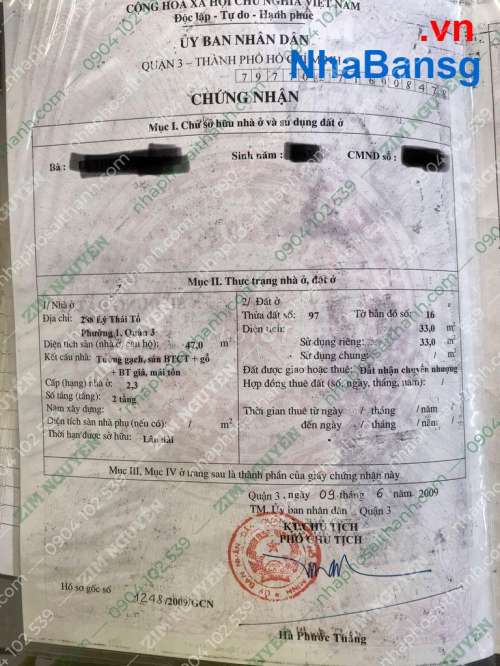 CỘNG HÒA XÃ HỘI CHỦ NGHĨA VIỆT NAM
Độc lập - Tự do - Hạnh phúc
.vn
NhaBansg
ỦY BAN NHÂN DÂN
QUẬN 3 – THÀNH PHỐ HỒ
CHỨNG NHẬN
Mục I. Chủ sở hữu nhà ở và sử dụng đất ở
Bà : Sinh năm : CMND số :
Mục II. Thực trạng nhà ở, đất ở
1/ Nhà ở
Địa chỉ: Lý Thái Tổ
Phường 1, Quận 3
Diện tích sàn (nhà ở, căn hộ): 47,0 m²
Kết cấu nhà: Tường gạch, sàn BTCT + gỗ
+ BT giả, mái tôn
Cấp (hạng) nhà ở: 2,3
Số tầng (tầng) 2 tầng
Năm xây dựng:
Diện tích sàn nhà phụ (nếu có): / m²
Thời hạn được sở hữu: Lâu dài
2/ Đất ở
Thửa đất số: 97 Tờ bản đồ số: 16
Diện tích: 33,0 m²
Sử dụng riêng: 33,0 m²
Sử dụng chung: / m²
Đất được giao hoặc thuê: Đất nhận chuyển nhượng
Hợp đồng thuê đất (số, ngày, tháng, năm): /
Thời gian thuê từ ngày / tháng /năm /
đến ngày / tháng /năm /
Mục III, Mục IV ở trang sau là thành phần của giấy chứng nhận này
Quận 3, ngày 09 tháng 6 năm 2009
TM. Ủy ban nhân dân Quận 3
KT.CHỦ TỊCH
PHÓ CHỦ TỊCH
Hồ sơ gốc số
1248/2009/GCN
Hà Phước Thắng
ZIM NGUYEN
nhaphosaithanh.com
0904.102.539